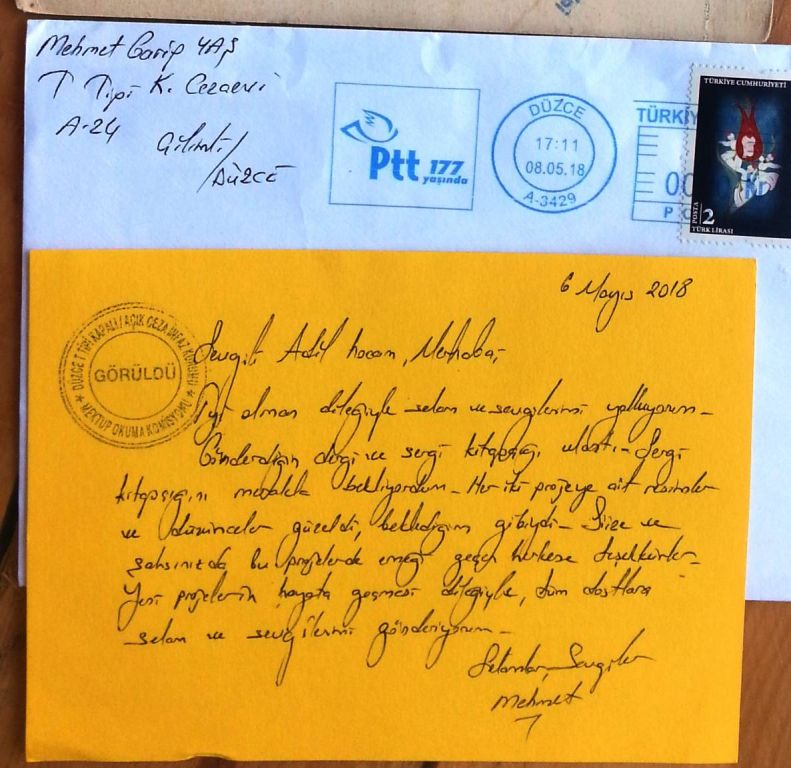 Mehmet Garip YAŞ
T Tipi K. Cezaevi
A-24
Çilimli/
DÜZCE
Ptt 177
yaşında
DÜZCE
17:11
08.05.18
A-3429
TÜRKİY
00
P
TÜRKİYE CUMHURİYETİ
POSTA
2
TÜRK LİRASI
DÜZCE T TİPİ KAPALI / AÇIK CEZA İNFAZ KURUMU
GÖRÜLDÜ
MEKTUP OKUMA KOMİSYONU
6 Mayıs 2018
Sevgili Adil hocam, Merhaba,
İyi olman dileğiyle selam ve sevgilerimi yolluyorum-
Gönderdiğin dergi ve sergi kitapçığı ulaştı- Sergi
kitapçığını merakla bekliyordum- Her iki projeye ait resimler
ve düşünceler güzeldi, beklediğim gibiydi- Size ve
şahsınızda bu projelerde emeği geçen herkese teşekkürler-
Yeni projelerin hayata geçmesi dileğiyle, tüm dostlara
selam ve sevgilerimi gönderiyorum-
Selamlar, Sevgiler
Mehmet